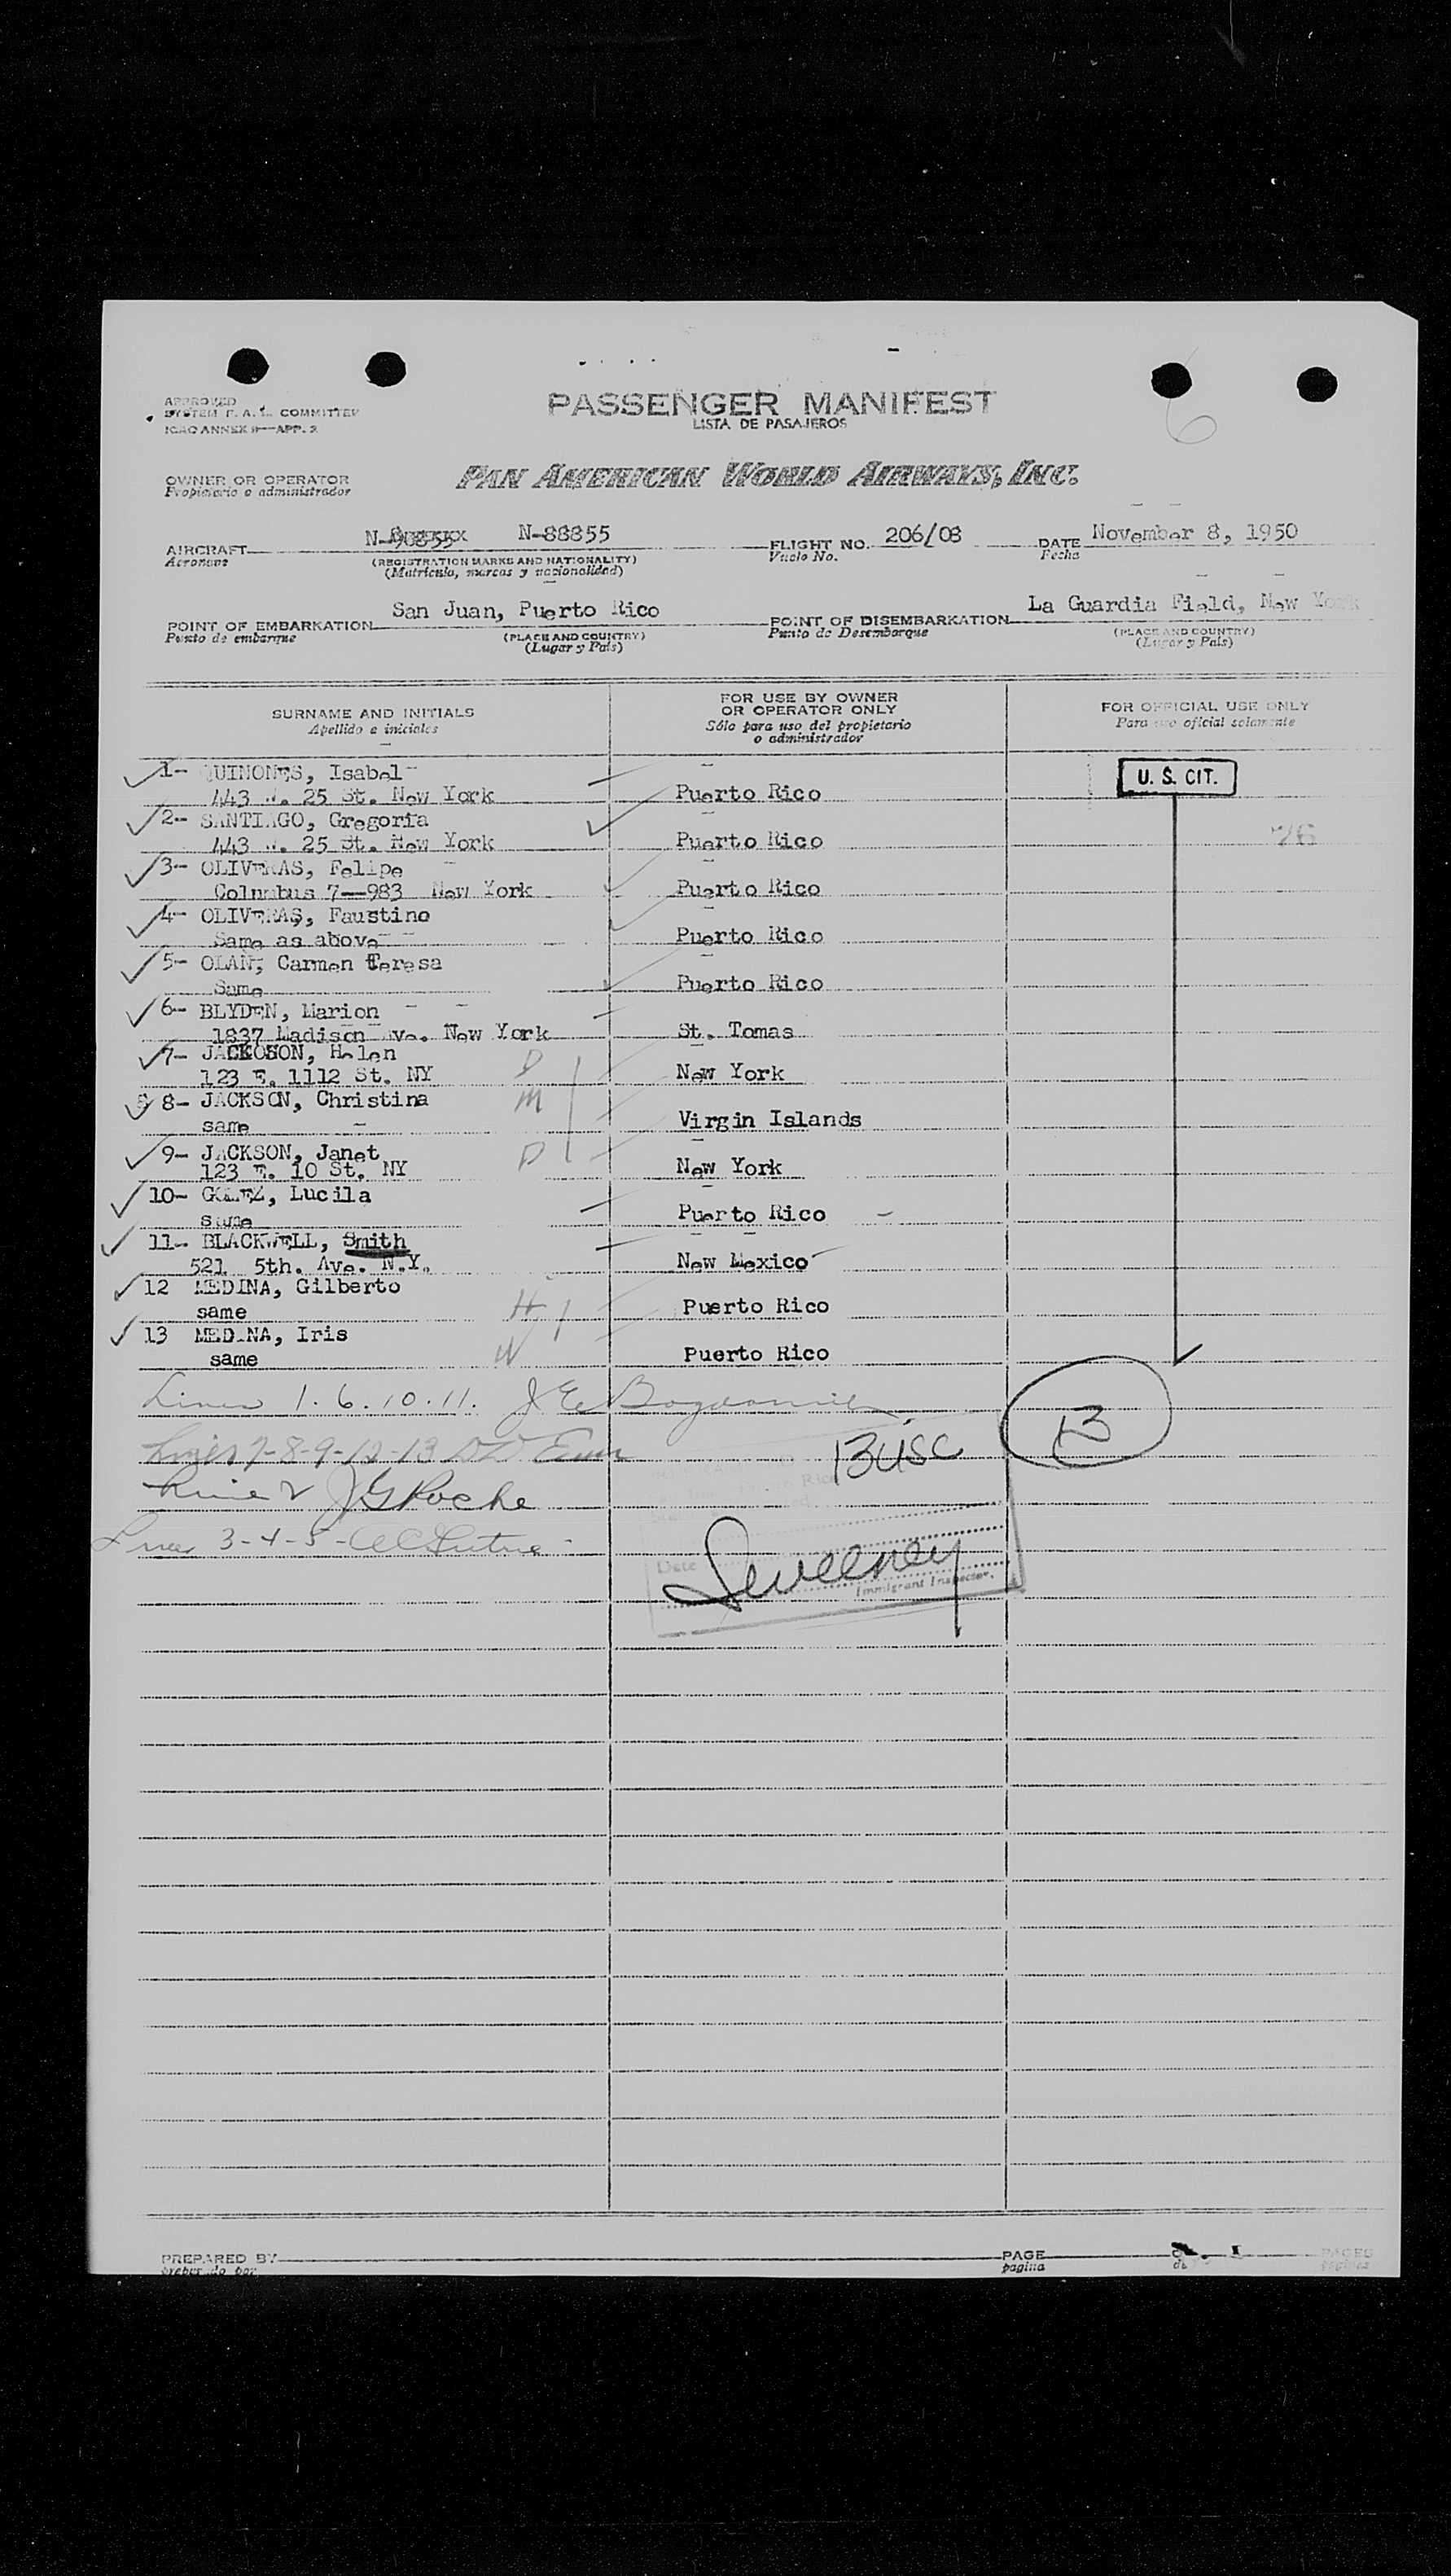 6
APPROVED
SYSTEM F. A. L. COMMITTEE
ICAO ANNEX 9—APP. 2
PASSENGER MANIFEST
LISTA DE PASAJEROS
OWNER OR OPERATOR
Propietario o administrador
PAN AMERICAN WORLD AIRWAYS, INC.
AIRCRAFT N-88855
Aeronave
(REGISTRATION MARKS AND NATIONALITY)
(Matrícula, marcas y nacionalidad)
FLIGHT NO. 206/08
Vuelo No.
DATE November 8, 1950
Fecha
POINT OF EMBARKATION San Juan, Puerto Rico
Punto de embarque
(PLACE AND COUNTRY)
(Lugar y País)
POINT OF DISEMBARKATION La Guardia Field, New York
Punto de Desembarque
(PLACE AND COUNTRY)
(Lugar y País)
SURNAME AND INITIALS
Apellido e iniciales
FOR USE BY OWNER
OR OPERATOR ONLY
Sólo para uso del propietario
o administrador
FOR OFFICIAL USE ONLY
Para uso oficial solamente
U. S. CIT.
1- QUINONES, Isabel
443 W. 25 St. New York Puerto Rico
2- SANTIAGO, Gregoria
443 W. 25 St. New York Puerto Rico 76
3- OLIVERAS, Felipe
Columbus 7—983 New York Puerto Rico
4- OLIVERAS, Faustino
Same as above Puerto Rico
5- OLAN, Carmen Teresa
Same Puerto Rico
6- BLYDEN, Marion
1837 Madison Ave. New York St. Tomas
7- JACKSON, Helen D
123 E. 1112 St. NY New York
8- JACKSON, Christina M
same Virgin Islands
9- JACKSON, Janet D
123 E. 10 St. NY New York
10- GOMEZ, Lucila
same Puerto Rico
11- BLACKWELL, Smith
521 5th. Ave. N.Y. New Mexico
12 MEDINA, Gilberto H
same Puerto Rico
13 MEDINA, Iris W
same Puerto Rico
Lines 1. 6. 10. 11. J E
13
Lines 7-8-9-12-13
13 USC
Line 2 J G Roche
Lines 3-4-5-
Date
Sweeney
Immigrant Inspector.
PREPARED BY
PAGE
pagina
PAGES